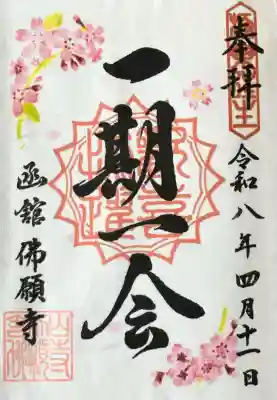 奉拝
令和八年四月十一日
一期一会
函館 佛願寺